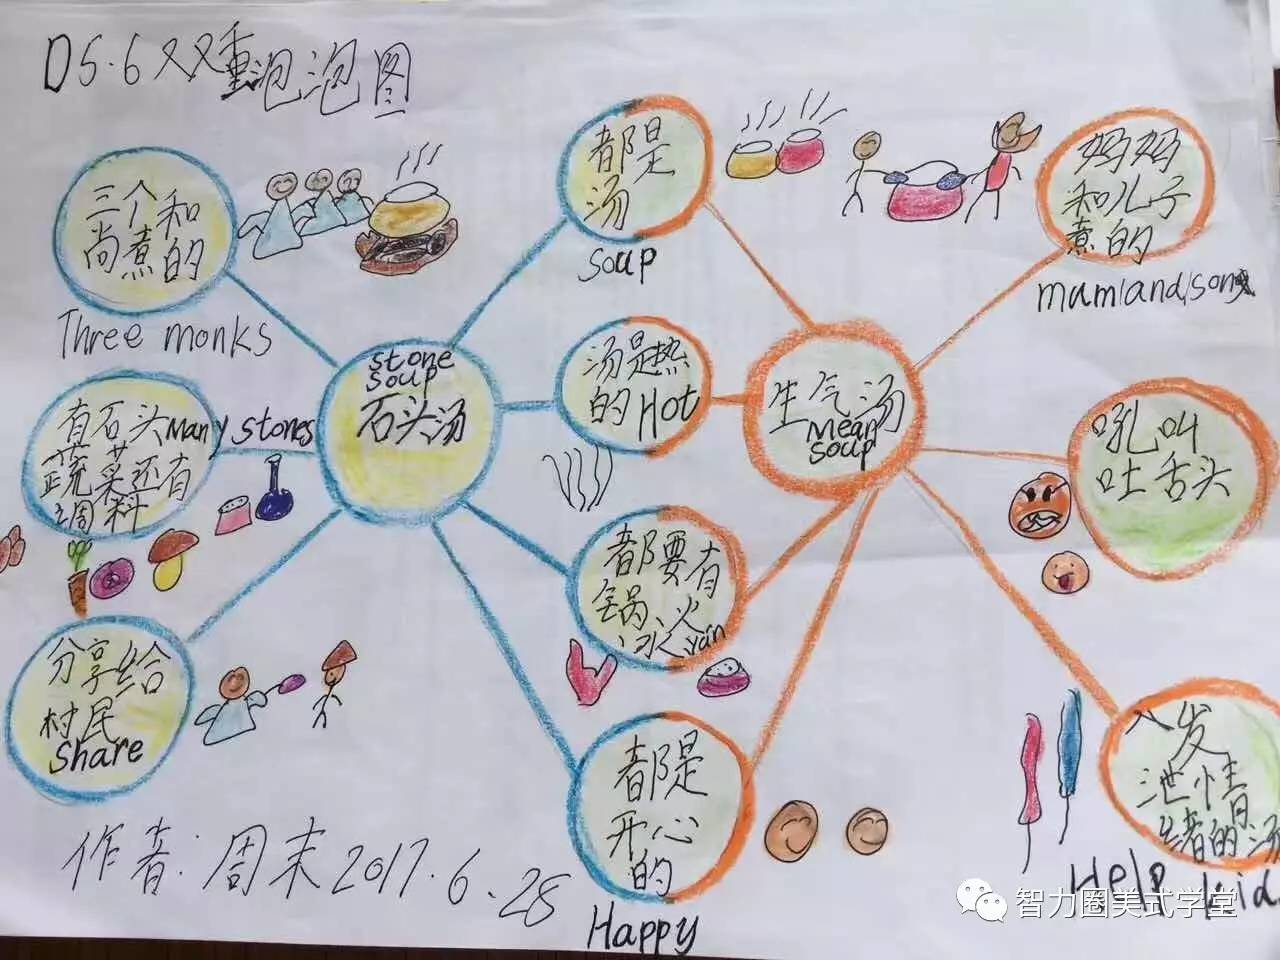 D5.6双重泡泡图
三个和
尚煮的
Three monks
都是
汤
Soup
妈妈
和儿子
煮的
mum/and/son
stone
soup
石头汤
有石头many stones
蔬菜还有
调料
汤是热
的Hot
生气汤
Mean
soup
吼叫
吐舌头
都要有
锅、火
yán
分享给
村民
Share
都是
开心
的
Happy
发
泄情
绪的汤
Help
作者:周末2017.6.28
智力圈美式学堂